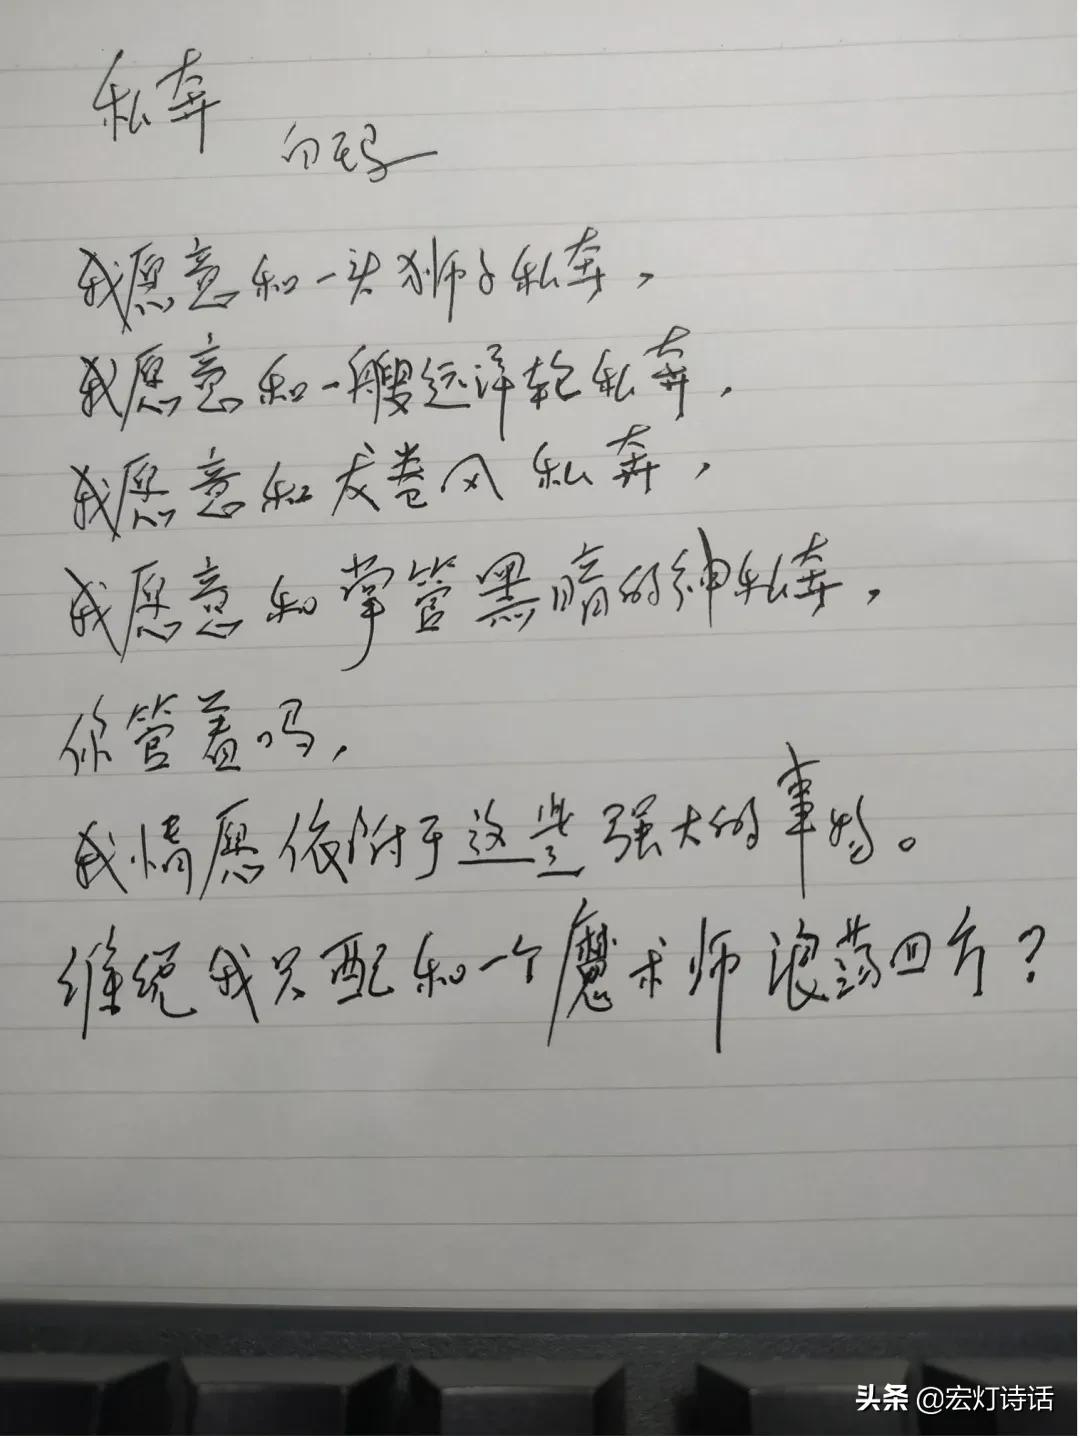 私奔
白玛
我愿意和一头狮子私奔，
我愿意和一艘远洋轮私奔，
我愿意和龙卷风私奔，
我愿意和掌管黑暗的神私奔，
你管着吗，
我情愿依附于这些强大的事物。
我只配和一个魔术师浪荡四方？
头条 @宏灯诗话